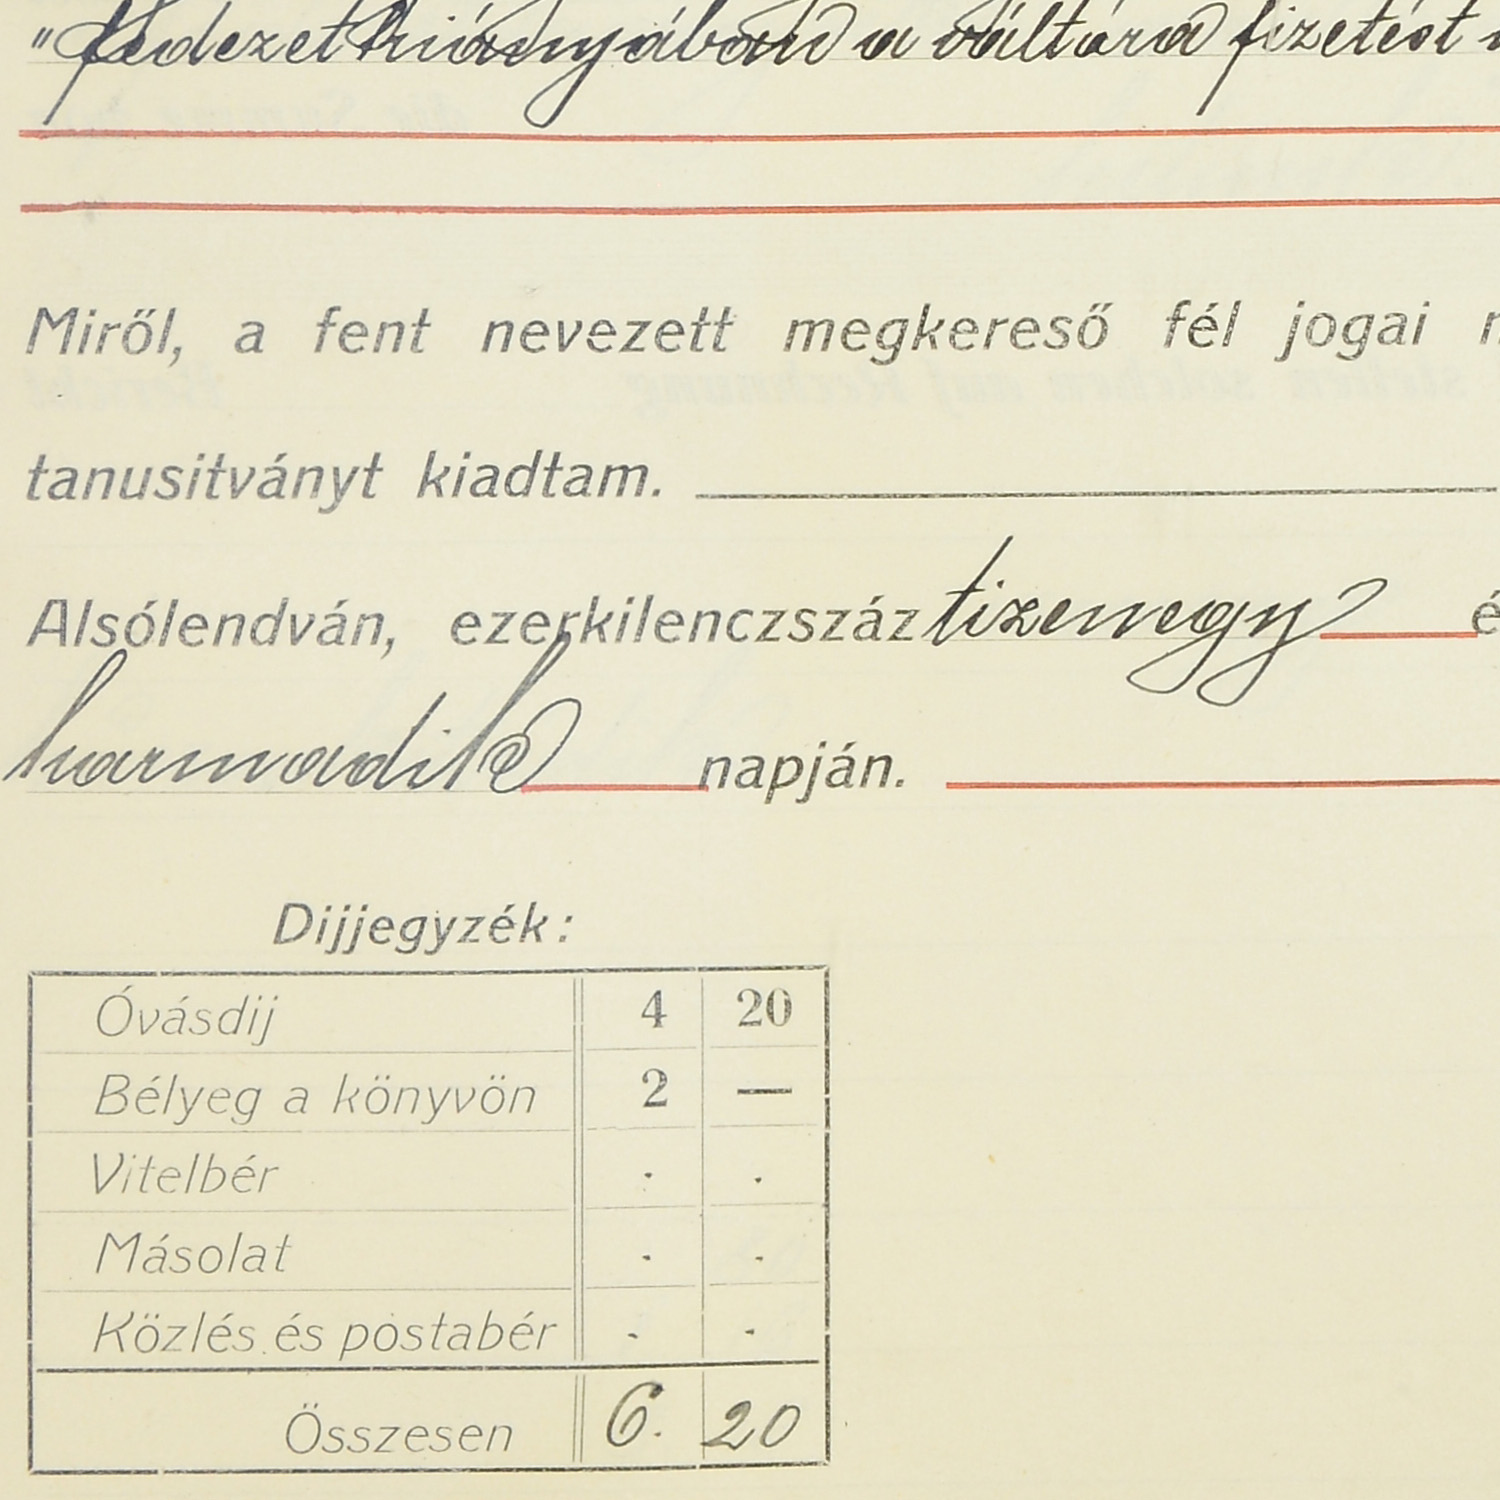 "fedezet hiányában a váltóra fizetést
Miről, a fent nevezett megkereső fél jogai
tanusitványt kiadtam.
Alsólendván, ezerkilenczszáz tizenegy é
harmadik napján.
Dijjegyzék:
Óvásdij 4 20
Bélyeg a könyvön 2 —
Vitelbér . .
Másolat . .
Közlés és postabér . .
Összesen 6. 20